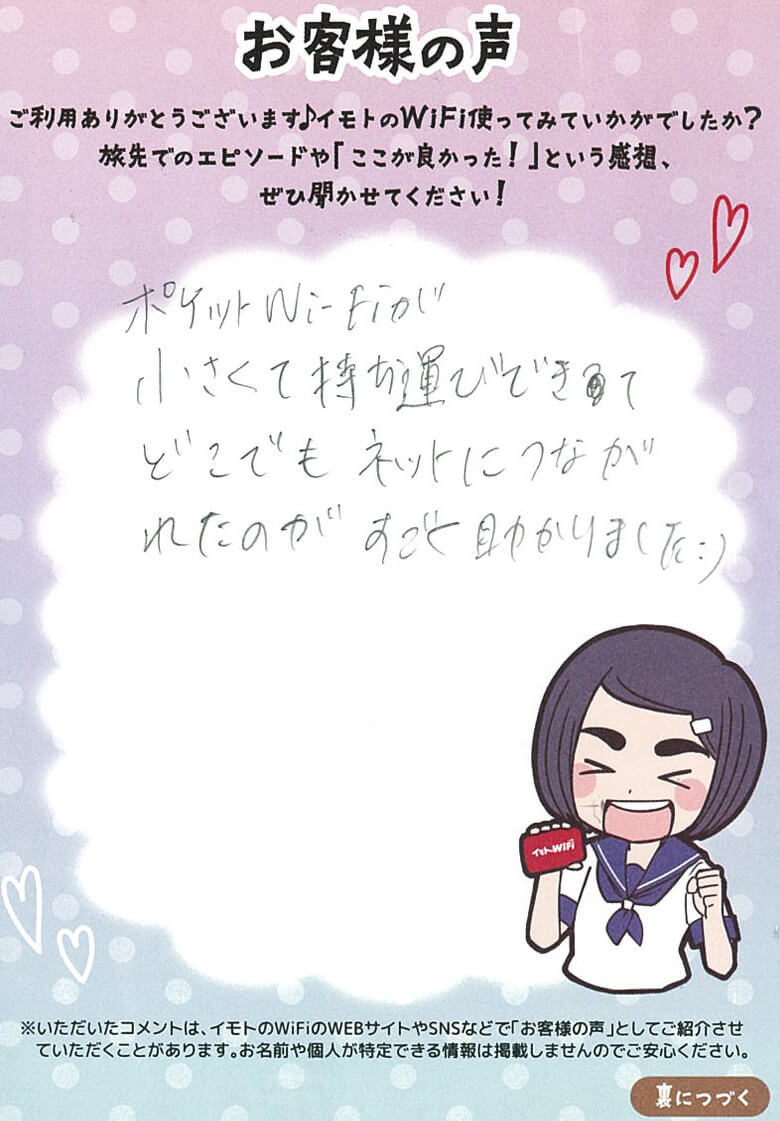 お客様の声
ご利用ありがとうございます♪イモトのWiFi使ってみていかがでしたか?
旅先でのエピソードや「ここが良かった!」という感想、
ぜひ聞かせてください!
ポケットWi-Fiが
小さくて持ち運びできて
どこでもネットにつなが
れたのがすごく助かりました:)
イモトのWiFi
※いただいたコメントは、イモトのWiFiのWEBサイトやSNSなどで「お客様の声」としてご紹介させ
ていただくことがあります。お名前や個人が特定できる情報は掲載しませんのでご安心ください。
裏につづく